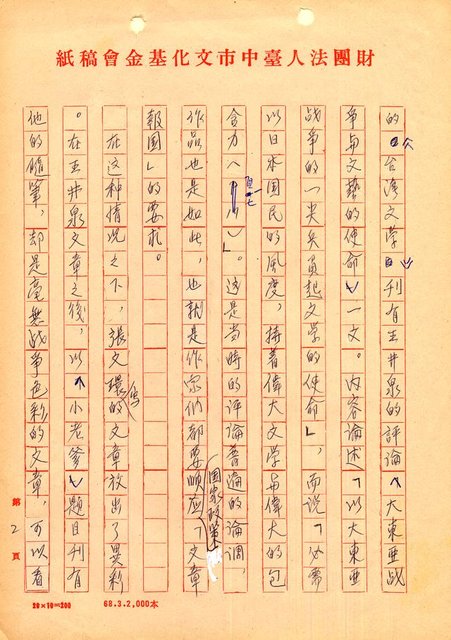 財團法人臺中市文化基金會稿紙
的《台湾文学》刊有王井泉的評論〈大東亜战
争与文藝的使命〉一文。內容論述「以大東亜
战争的一尖兵負起文学的使命」，而說「必需
以日本国民的風度，持着偉大文学与偉大的包
含力（頁一七）」。这是当時的評論普遍的論調，
作品也是如此，也就是作家们都要順应国家政策「文章
報国」的要求。
在这种情况之下，張文環寫的文章放出了異彩
。在王井泉文章之後，以〈小老爹〉題目刊有
他的隨筆，却是毫無战争色彩的文章，可以看
第2頁
20×10=200
68.3.2,000本